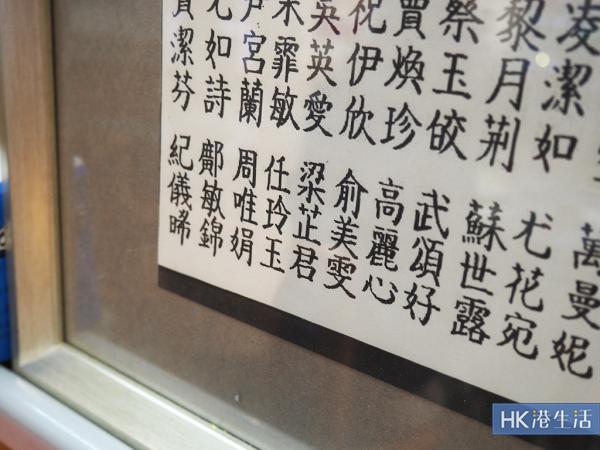 萬曼妮
凌潔如 尤花宛
黎月荊 蘇世露
玉皎 武頌好
賈煥珍 高麗心
祝伊欣 俞美雯
吳英愛 梁芷君
霏敏 任玲玉
宮蘭 周唯娟
如詩 鄺敏錦
潔芬 紀儀晞
HK港生活